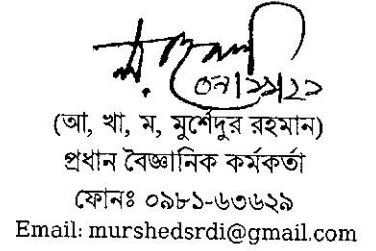 ০৭/১১/২১
(আ, খা, ম, মুর্শেদুর রহমান)
প্রধান বৈজ্ঞানিক কর্মকর্তা
ফোনঃ ০৯৮১-৬৩৬২৯
Email: murshedsrdi@gmail.com